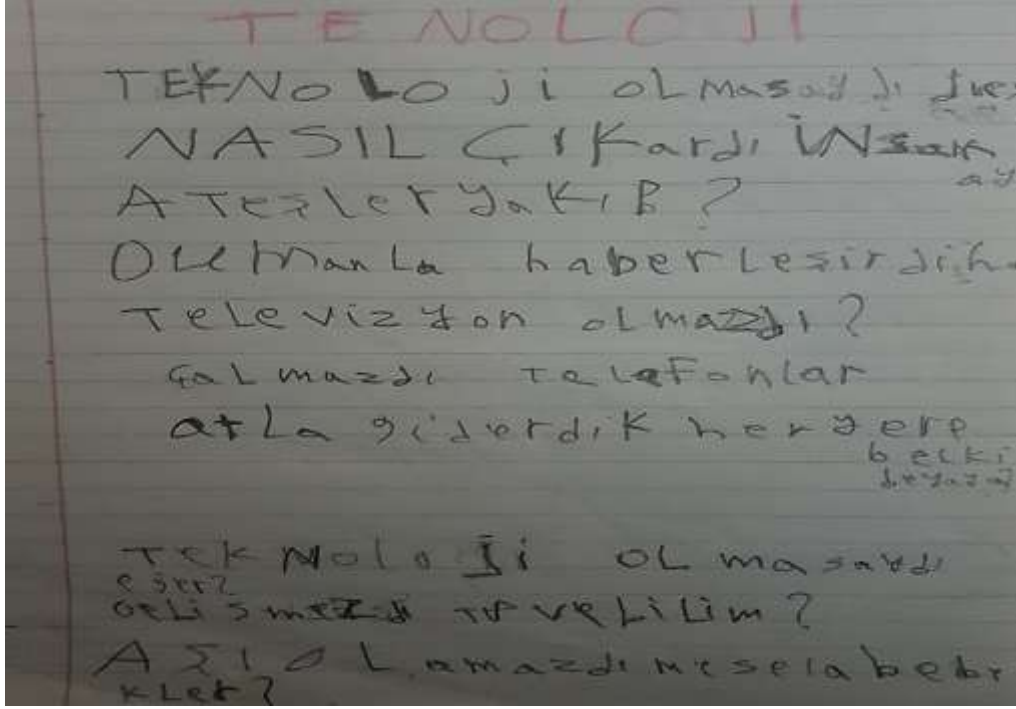 TENOLOJI
TEKNOLOji oLmasaydı
NASIL ÇIKardı İNsan
ay
ATeşler yaKıB ?
DUmanLa haberLeşirdik
TeLevizyon oLmazdı ?
çaLmazdı TeLeFonlar
atLa giderdiK heryere
beLki
TeKNoloJi OLmasaydı
eğer?
geLişmezdi TıP ve biLim ?
AŞI OLamazdı meseLa bebe
kLer ?